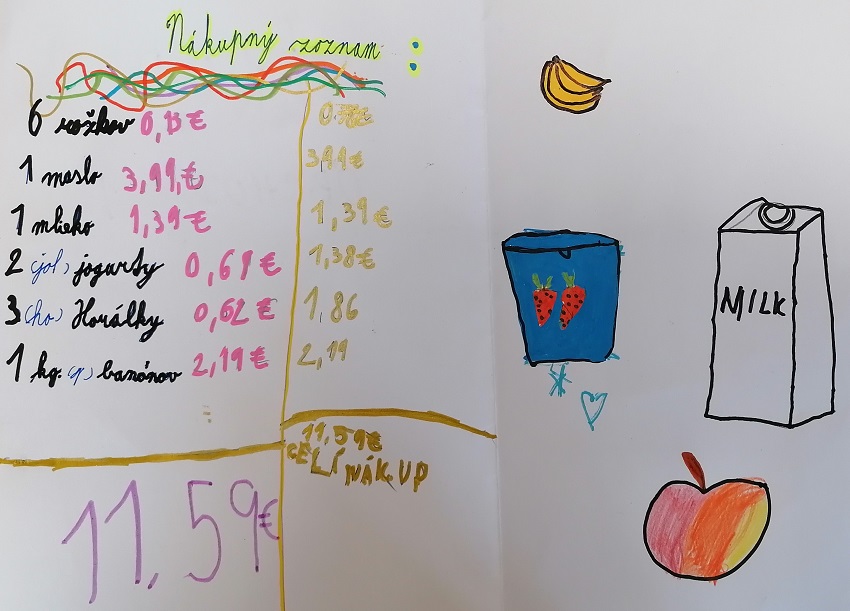 Nákupný zoznam :
6 rožkov 0,13 €
1 maslo 3,99,€ 3,99€
1 mlieko 1,39 € 1,39€
2 (jol) jogurty 0,69 € 1,38€
3 (ho) Horálky 0,62 € 1,86
1 kg. banánov 2,19 € 2,19
11,59€
CELÍ NÁKUP
11,59€
MILK